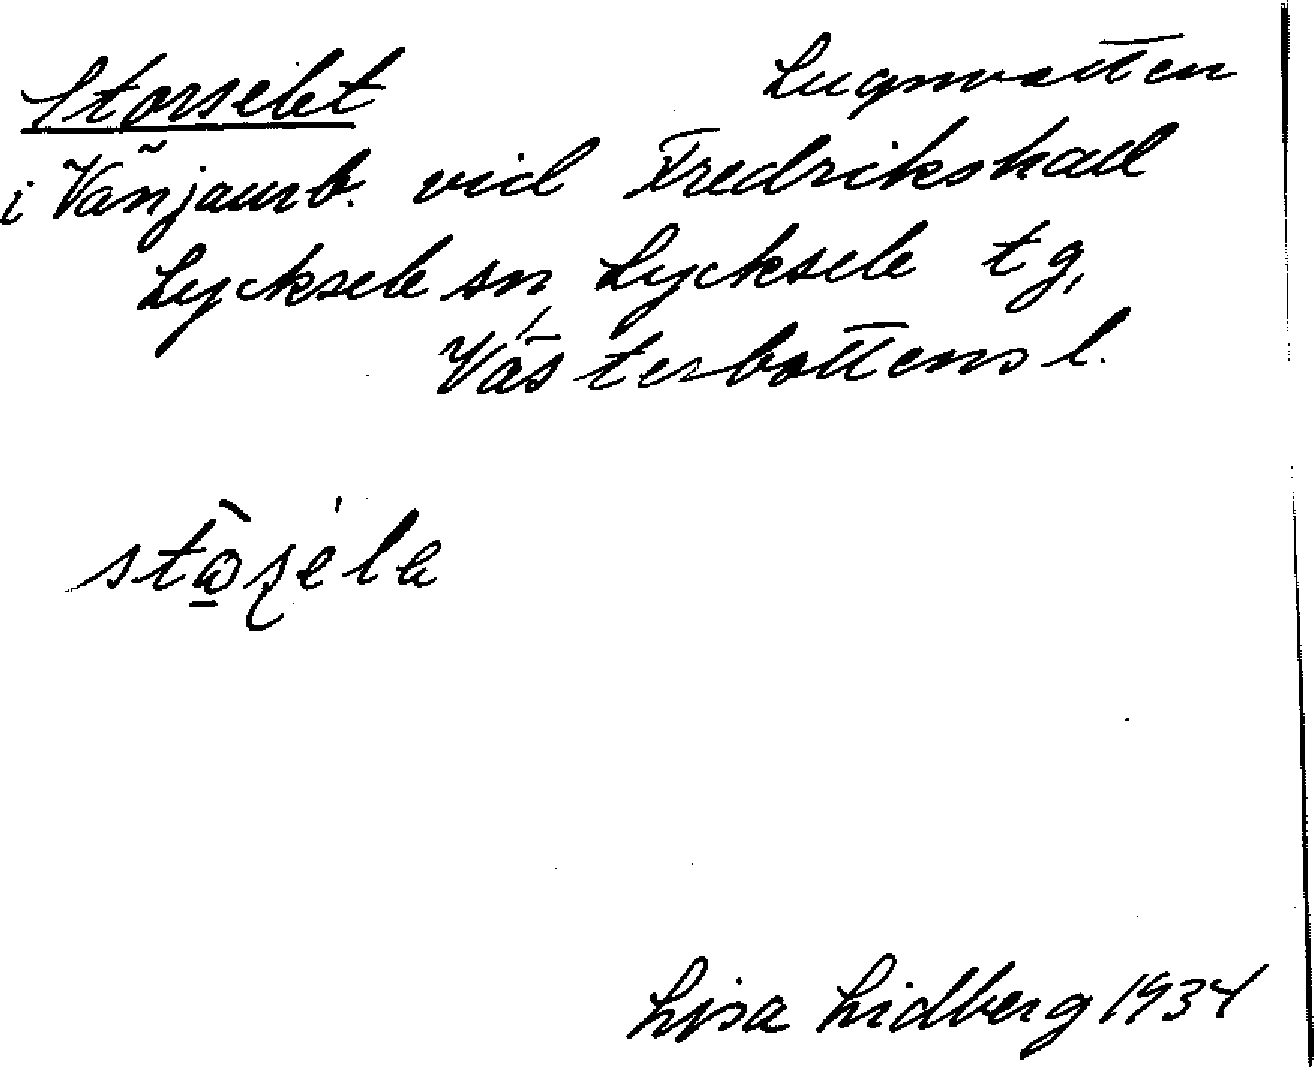 Storselet Lugnvatten
i Vänjaurb. vid Fredrikshall
Lycksele sn, Lycksele tg,
Västerbottens l.
Lisa Lidberg 1934